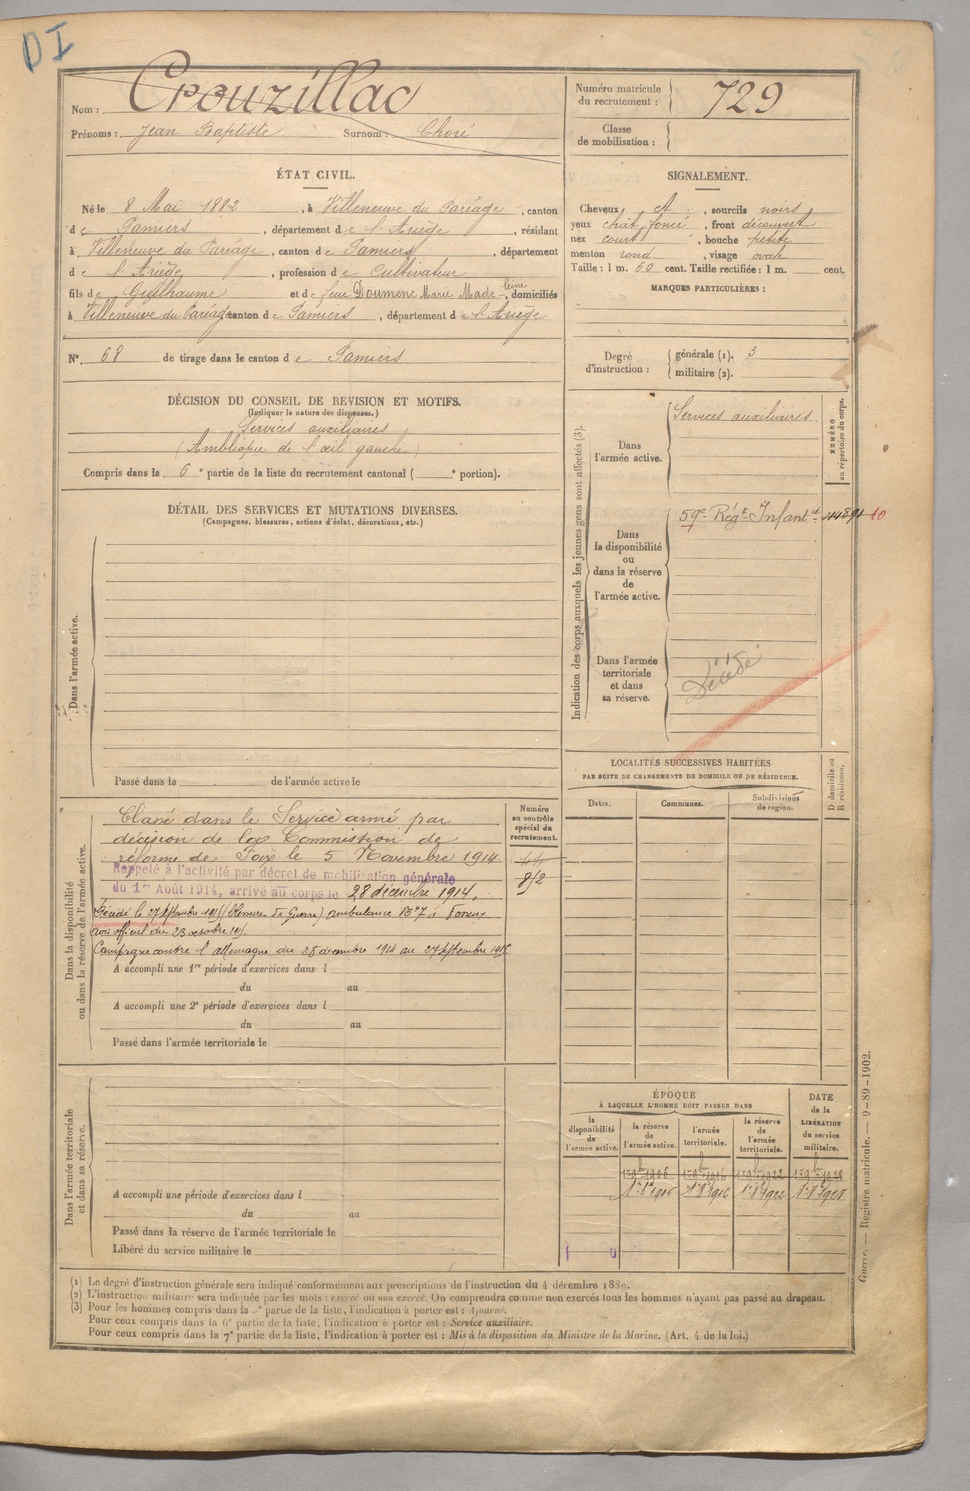 DI
Nom : Crouzillac
Prénoms : Jean Baptiste Surnom : Choré
Numéro matricule du recrutement : 729
Classe de mobilisation :
ÉTAT CIVIL.
Né le 8 Mai 1882, à Villeneuve du Paréage, canton
de Pamiers, département de l'Ariège, résidant
à Villeneuve du Paréage, canton de Pamiers, département
de l'Ariège, profession de Cultivateur
fils de Guilhaume et de feue Doumenc Marie Madeleine, domiciliés
à Villeneuve du Paréage canton de Pamiers, département de l'Ariège
N° 68 de tirage dans le canton de Pamiers
SIGNALEMENT.
Cheveux et, sourcils noirs
yeux chât. foncé, front découvert
nez court, bouche petite
menton rond, visage ovale
Taille : 1 m. 60 cent. Taille rectifiée : 1 m. cent.
MARQUES PARTICULIÈRES :
Degré d'instruction : générale (1). 3
militaire (2).
DÉCISION DU CONSEIL DE REVISION ET MOTIFS.
(Indiquer la nature des dispenses.)
Services auxiliaires
(Ambliopie de l'œil gauche)
Compris dans la 6e partie de la liste du recrutement cantonal ( e portion).
DÉTAIL DES SERVICES ET MUTATIONS DIVERSES.
(Campagnes, blessures, actions d'éclat, décorations, etc.)
Dans l'armée active.
Passé dans la de l'armée active le
Indication des corps auxquels les jeunes gens sont affectés (3).
NUMÉRO au répertoire du corps.
Dans l'armée active.
Services auxiliaires
Dans la disponibilité ou dans la réserve de l'armée active.
59e Régt Infantrie 10
Dans l'armée territoriale et dans sa réserve.
Décédé
LOCALITÉS SUCCESSIVES HABITÉES
PAR SUITE DE CHANGEMENTS DE DOMICILE OU DE RÉSIDENCE.
Dates.
Communes.
Subdivisions de région.
D domicile ou R résidence.
Dans la disponibilité ou dans la réserve de l'armée active.
Numéro au contrôle spécial du recrutement.
44
8/2
Classé dans le Service armé par
décision de la Commission de
réforme de Foix le 5 Novembre 1914
Rappelé à l'activité par décret de mobilisation générale
du 1er Août 1914, arrivé au corps le 28 décembre 1914,
Décédé le 27 septembre 1915 (blessures de Guerre) ambulance
avis officiel du 23 octobre 1915.
Campagne contre l'allemagne du 28 décembre 1914 au 27 septembre 1915.
A accompli une 1re période d'exercices dans l
du au
A accompli une 2e période d'exercices dans l
du au
Passé dans l'armée territoriale le
Dans l'armée territoriale et dans sa réserve.
A accompli une période d'exercices dans l
du au
Passé dans la réserve de l'armée territoriale le
Libéré du service militaire le
ÉPOQUE
À LAQUELLE L'HOMME DOIT PASSER DANS
la disponibilité de l'armée active.
la réserve de l'armée active.
l'armée territoriale.
la réserve de l'armée territoriale.
DATE de la LIBÉRATION du service militaire.
1er 9bre 1906 1er 9bre 1916 1er 9bre 1922 1er 9bre 1928
1er 8bre 1906 1er 8bre 1916 1er 8bre 1922 1er 8bre 1928
(1) Le degré d'instruction générale sera indiqué conformément aux prescriptions de l'instruction du 4 décembre 1889.
(2) L'instruction militaire sera indiquée par les mots : exercé ou non exercé. On comprendra comme non exercés tous les hommes n'ayant pas passé au drapeau.
(3) Pour les hommes compris dans la 5e partie de la liste, l'indication à porter est : Ajourné.
Pour ceux compris dans la 6e partie de la liste, l'indication à porter est : Service auxiliaire.
Pour ceux compris dans la 7e partie de la liste, l'indication à porter est : Mis à la disposition du Ministre de la Marine. (Art. 4 de la loi.)
Guerre. — Registre matricule. — 9-89-1902.